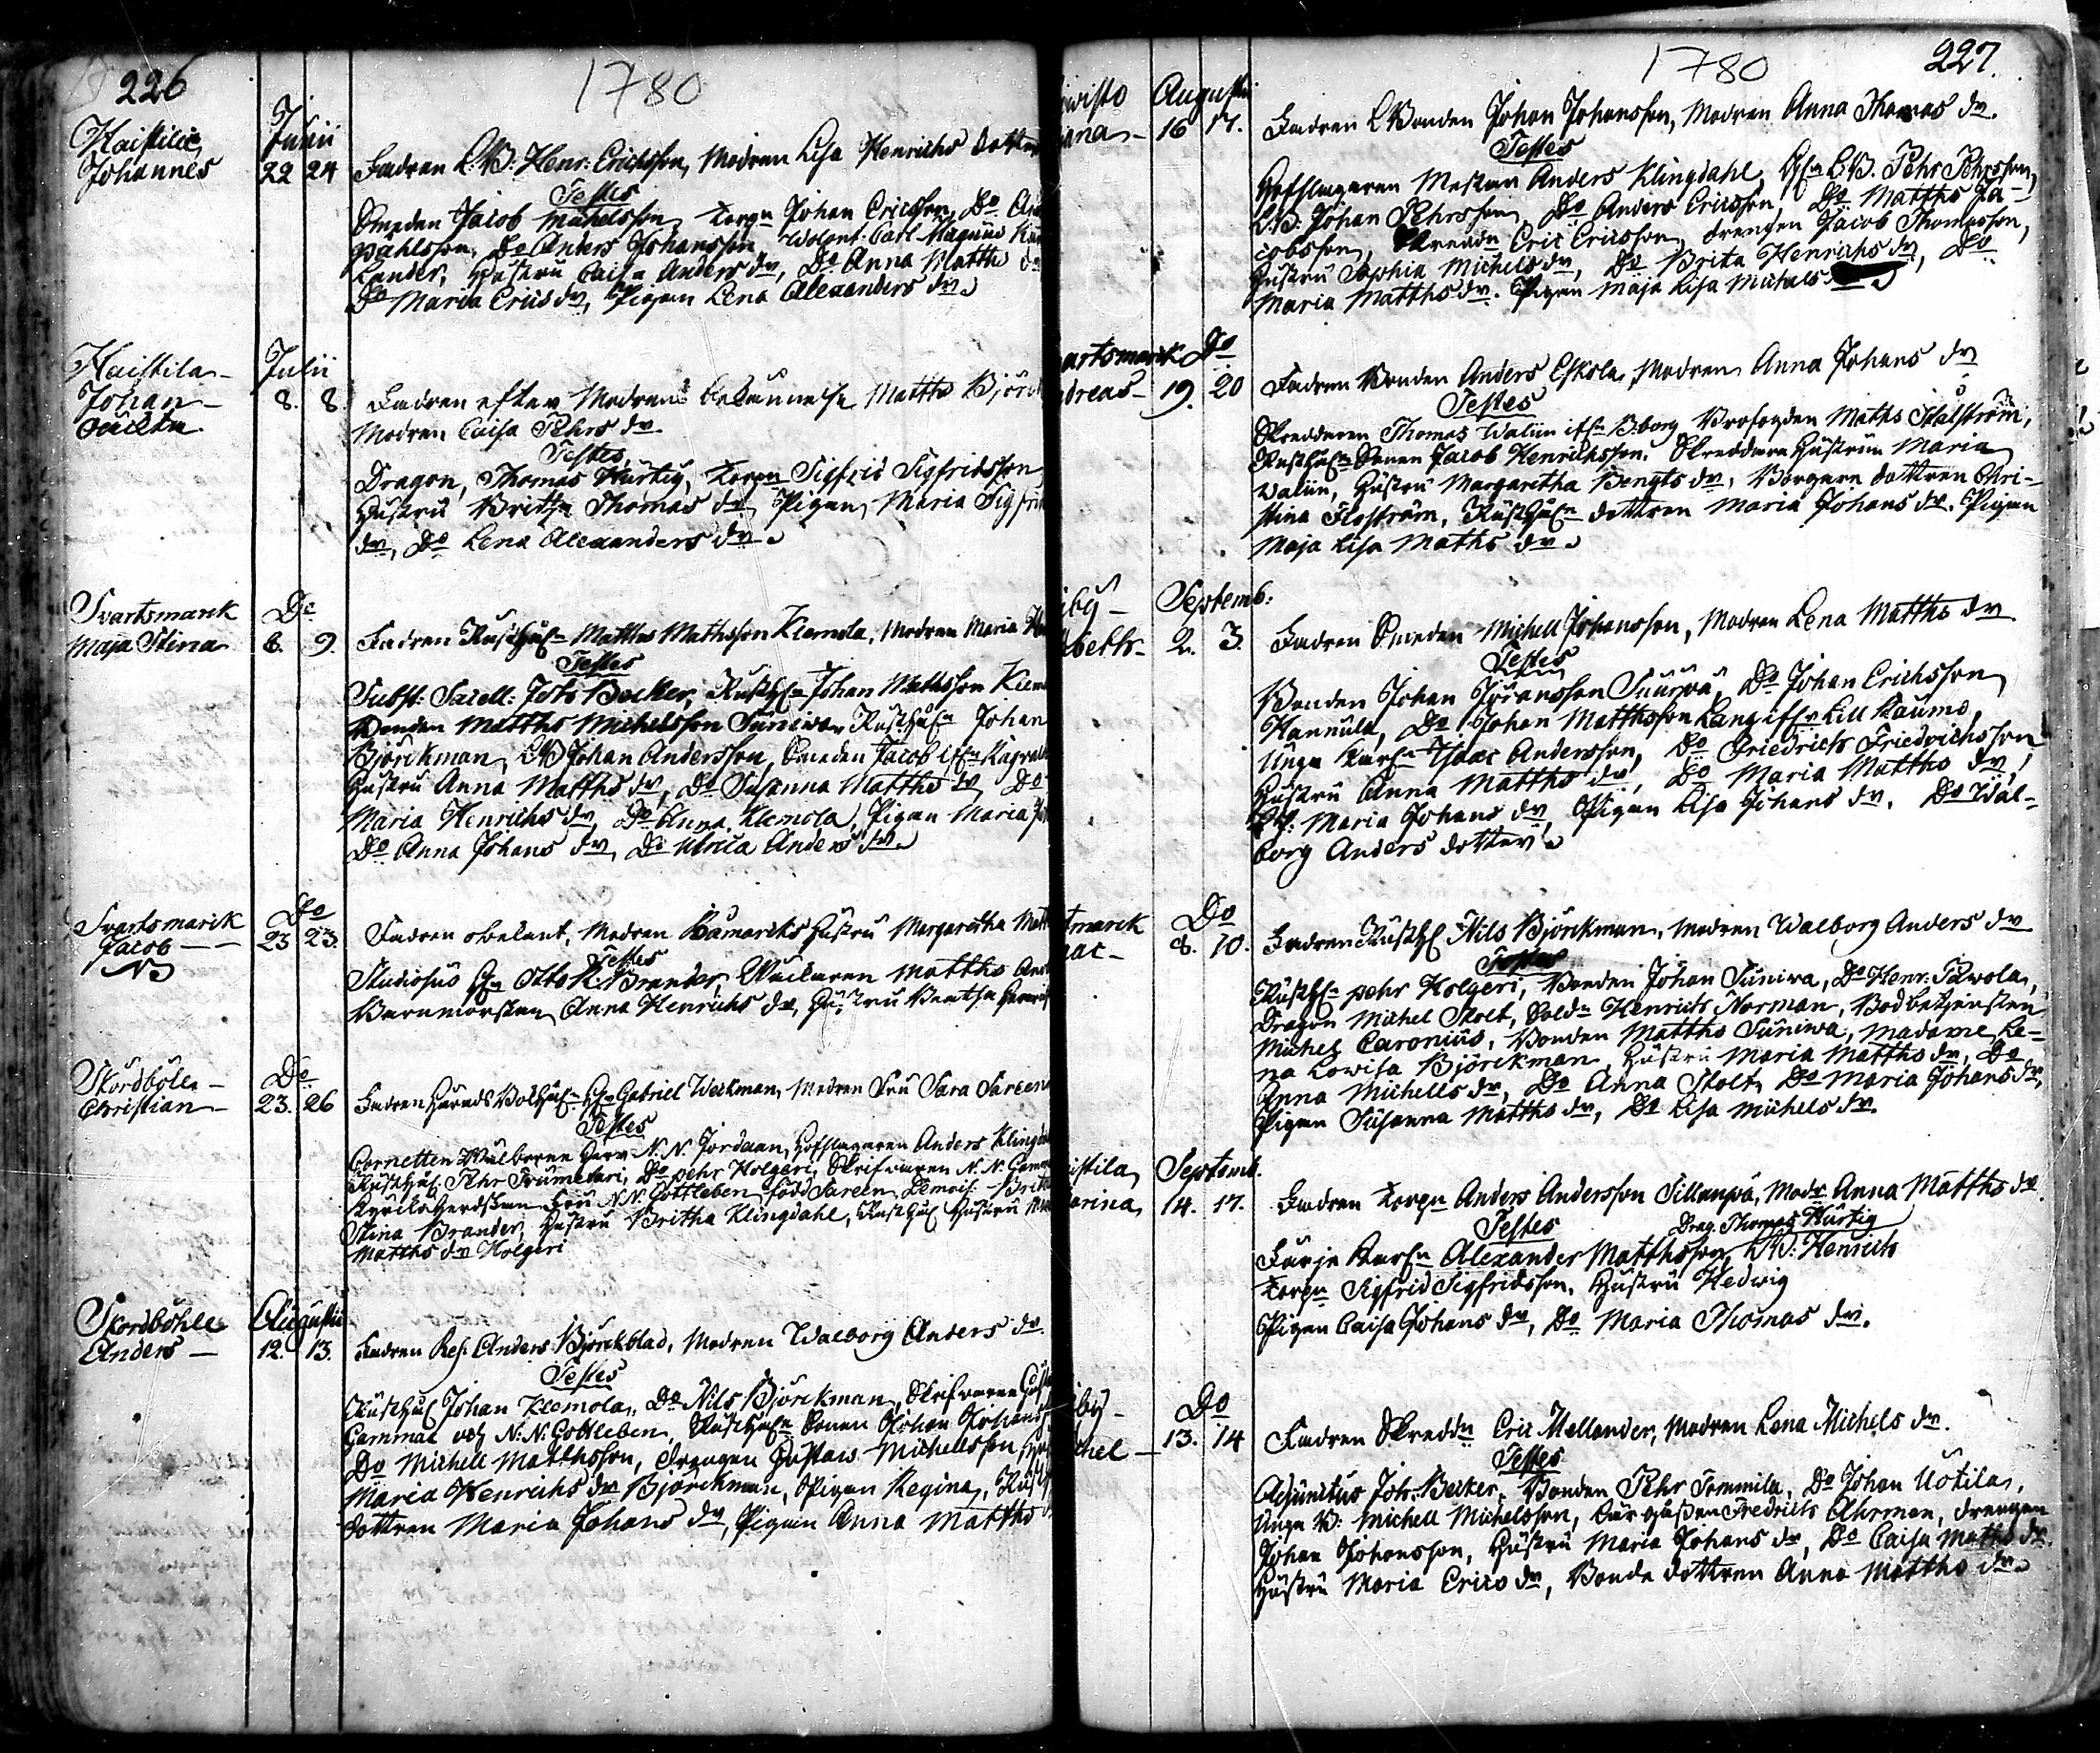 226
1780
Haistila
Johannes
Julii
22 24
Fadren L.B. Henr. Erichsson, Modren Lisa Henrichs dotter
Testes
Smeden Jacob Michelsson, Torp:n Johan Ericsson, D:o
Pahlsson, D:o Anders Johansson, Carl Magnus
Lander, Hustru Caisa Anders dr, D:o Anna Matths dr
D:o Maria Erics dr, Pigan Lena Alexanders dr.
Haistila
Johan
oächta
Julii
8. 8.
Fadren efter Modrens bekännelse Matths
Modren Caisa Pehrs dr
Testes
Dragon, Thomas Hurtig, Torp:n Sigfrid Sigfridsson
Hustru Britha Thomas dr, Pigan, Maria
dr, D:o Lena Alexanders dr.
Svartsmark
Maja Stina
D:o
6. 9.
Fadren Rusth:n Matths Mathsson Klemola, Modren Maria
Testes
Subst: Sacell: Joh: Becker, Rusth:n Johan Mathsson
Bonden Matths Michelsson Suniwa, Rusth:n Johan
Björckman, LB Johan Andersson, Smeden Jacob
Hustru Anna Matths dr, D:o Susanna Matths dr D:o
Maria Henrichs dr, D:o Anna Klemola, Pigan Maria
D:o Anna Johans dr, D:o Ulrica Anders dr.
Svartsmarck
Jacob
NB
D:o
23 23.
Fadren obekant, Modren Hustru Margaretha
Testes
Studiosus H:r Otto R. Brander, Matths
Barnmorskan Anna Henrichs dr, Hustru Beatha
Skördböle
Christian
D:o
23. 26
Fadren Härads H:r Gabriel Weckman, Modren Fru Sara
Testes
Cornetten Wälborne Herr N. N. Jordaan, Hofslagaren Anders
Rusth: Pehr D:o pehr Holgeri, Skrifvaren N. N.
Fru N. N. Gottleben född Demois:
Stina Brander, Hustru Britha Klingdahl, Rusth: Hustru
Matths dr Holgeri
Skordböhle
Anders
Augusti
12. 13.
Fadren Res: Anders Björckblad, Modren Walborg Anders dr.
Testes
Rusth: Johan Klemola, D:o Nils Björckman, Skrifvaren
Gammal och N. N. Gottleben, Rusth:n Sonen Johan
D:o Michell Matthsson, drengen Gustav Michellsson
Maria Henrichs dr Björckman, Pigan Regina,
dottren Maria Johans dr, Pigan Anna Matths
1780
227.
Augusti
16 17.
Fadren LBonden Johan Johansson, Modren Anna Thomas dr.
Testes
Hofslagaren Mestan Anders Klingdahl, L.B. Pehr Pehrsson,
L.B. Johan Pehrsson, D:o Anders Ericsson, D:o Matths Ja-
cobsson, Eric Ericsson, drengen Jacob Thomasson,
Hustru Sophia Michels dr, D:o Brita Henrichs dr, D:o
Maria Matths dr. Pigan Maja Lisa Michels
artsmarck
dreas
D:o
19. 20
Fadren Bonden Anders Eskola, Modren Anna Johans dr
Testes
Skreddaren Thomas Walin B:borg Brofogden Maths Stålström,
Rusth:n Sonen Jacob Henrichsson. Skreddare Hustrun Maria
Walin, Hustru Margaretha Bengts dr, Borgare dottren Chri-
stina Floström, Rusth:n dottren Maria Johans dr. Pigan
Maja Lisa Maths dr.
iby
Septemb:
2. 3.
Fadren Smeden Michell Johansson, Modren Lena Matths dr
Testes
Bonden Johan Göransson Suurpä, D:o Johan Erichsson
Hannula, D:o Johan Matthsson Lang Lill Raumo,
Unga Isaac Andersson, D:o Friedrich Friedrichsson
Hustru Anna Matths dr, D:o Maria Matths dr,
Maria Johans dr, Pigan Lisa Johans dr, D:o Wal-
borg Anders dotter.
tmarck
D:o
8. 10.
Fadren Rusth: Nils Björckman, Modren Walborg Anders dr
Testes
Rusth:n pehr Holgeri, Bonden Johan Suniwa, D:o Henr: Pawola,
Dragon Michel Stolt, Sold:n Henrich Norman,
Michel Caronius, Bonden Matths Suniwa, Madame Le-
na Lowisa Björckman, Hustru Maria Matths dr, D:o
Anna Michells dr, D:o Anna Stolt, D:o Maria Johans dr,
Pigan Susanna Matths dr, D:o Lisa Michels dr.
istila
arina
Septemb.
14. 17.
Fadren Torp:n Anders Andersson Sillanpä, Modr Anna Matths dr
Testes
Drag. Thomas Hurtig
Färje Karl:n Alexander Matthsson, LB: Henrich
Torp:n Sigfrid Sigfridsson, Hustru Hedwig
Pigan Caisa Johans dr, D:o Maria Thomas dr.
iby
chel
D:o
13. 14
Fadren Skredd:n Eric Mellander, Modren Lena Michels dr.
Testes
Adjunctus Joh: Becker, Bonden Pehr Tommila, D:o Johan Uotila,
Unga B: Michell Michelsson, Fredrich Ahrman, drengen
Johan Johansson, Hustru Maria Johans dr, D:o Caisa Maths dr.
Hustru Maria Erics dr, Bonde dottren Anna Matths dr.